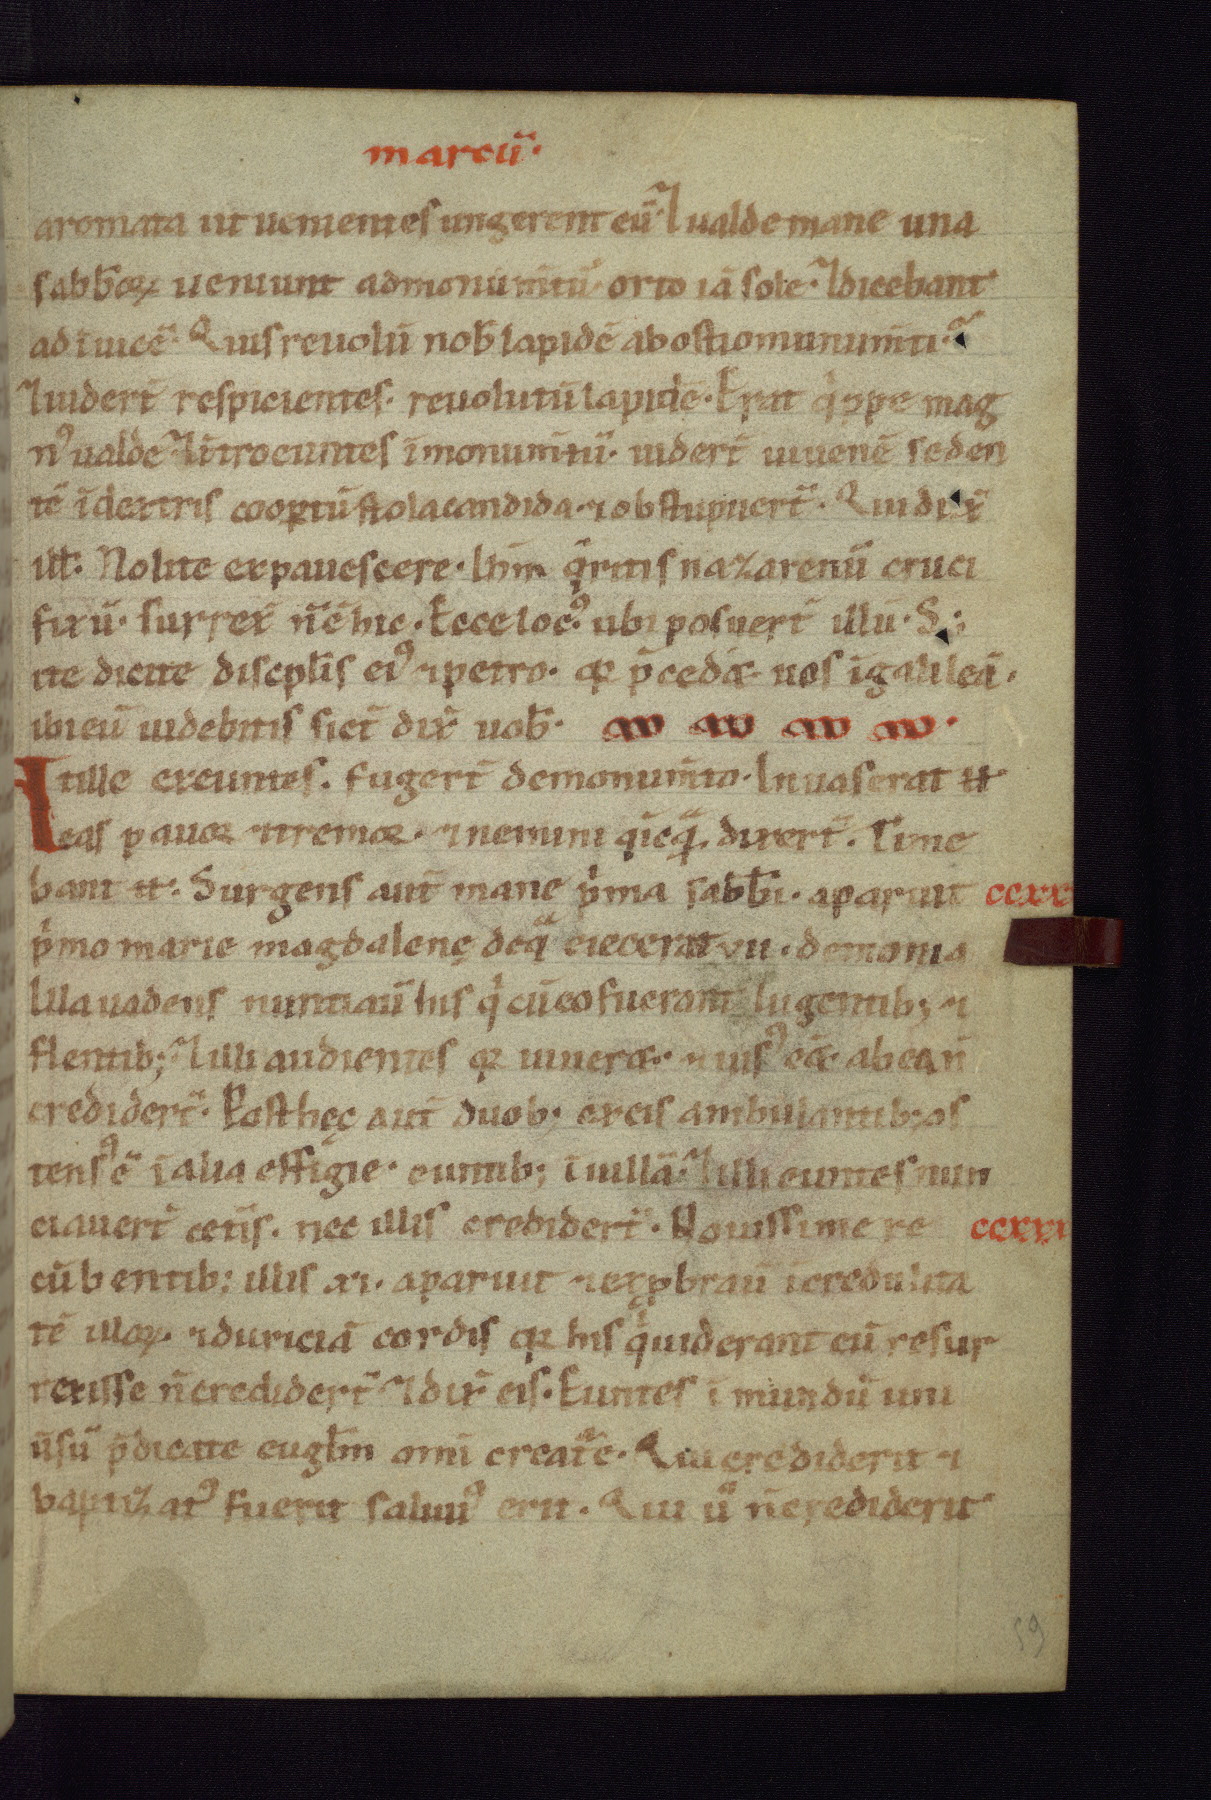 marcū·
aromata ut uenientes ungerent eū· ⁊ ualde mane una
sabb̄oꝝ ueniunt ad monum̄tū· orto iā sole· ⁊ dicebant
ad īuicē· Quis reuolū nob̄ lapidē ab ostio munum̄ti·
⁊ uider̄t respicientes· reuolutū lapidē· Erat qͥppe mag
nꝰ ualde ⁊ ītroeuntes ī monum̄tū· uider̄t iuuenē seden
tē ī dextris coop̱tū stola candida· ⁊ obstupuer̄t· Qui dix̄
ill̄· Nolite expauescere· ihm̄ qͥritis nazarenū cruci
fixū· surrex̄ n̄ ē hic· Ecce locꝰ ubi posuer̄t illū· S;
ite dicite discipl̄is eiꝰ ⁊ petro· qꝛ p̄cedꝫ uos ī galileā·
ibi eū uidebitis sict̄ dix̄ uob̄·
At ille exeuntes· fuger̄t de monum̄to· Inuaserat n̄
eas pauoꝛ ⁊ tremoꝛ· ⁊ nemini qͥcqͣ dixer̄t· Time
bant n̄· Surgens aut̄ mane pͥma sabb̄i· aparuit ccxx
pͥmo marie magdalenę de qͣ eiecerat vii· demonia
Illa uadens nuntiaū his qͥ cū eo fuerant lugentib; ⁊
flentib; ⁊ illi audientes qꝛ uiueret· ⁊ uisꝰ eēt ab ea n̄
credider̄t· Post hęc aut̄ duob; ex eis ambulantib; os
tensꝰ ē ī alia effigie· euntib; ī uillā· ⁊ illi euntes nun
ciauer̄t cet̄is· nec illis credider̄t· Nouissime re ccxxxi
cūbentib; illis xi· aparuit ⁊ exꝓbraū īcredulita
tē illoꝝ· ⁊ duriciā cordis qꝛ his qͥ uiderant eū resur
rexisse n̄ credider̄t ⁊ dix̄ eis· Euntes ī mundū uni
ūsū p̄dicate eugl̄m omī creat̄e· Qui crediderit ⁊
baptizatꝰ fuerit saluuꝰ erit· Qui ū n̄ crediderit
59